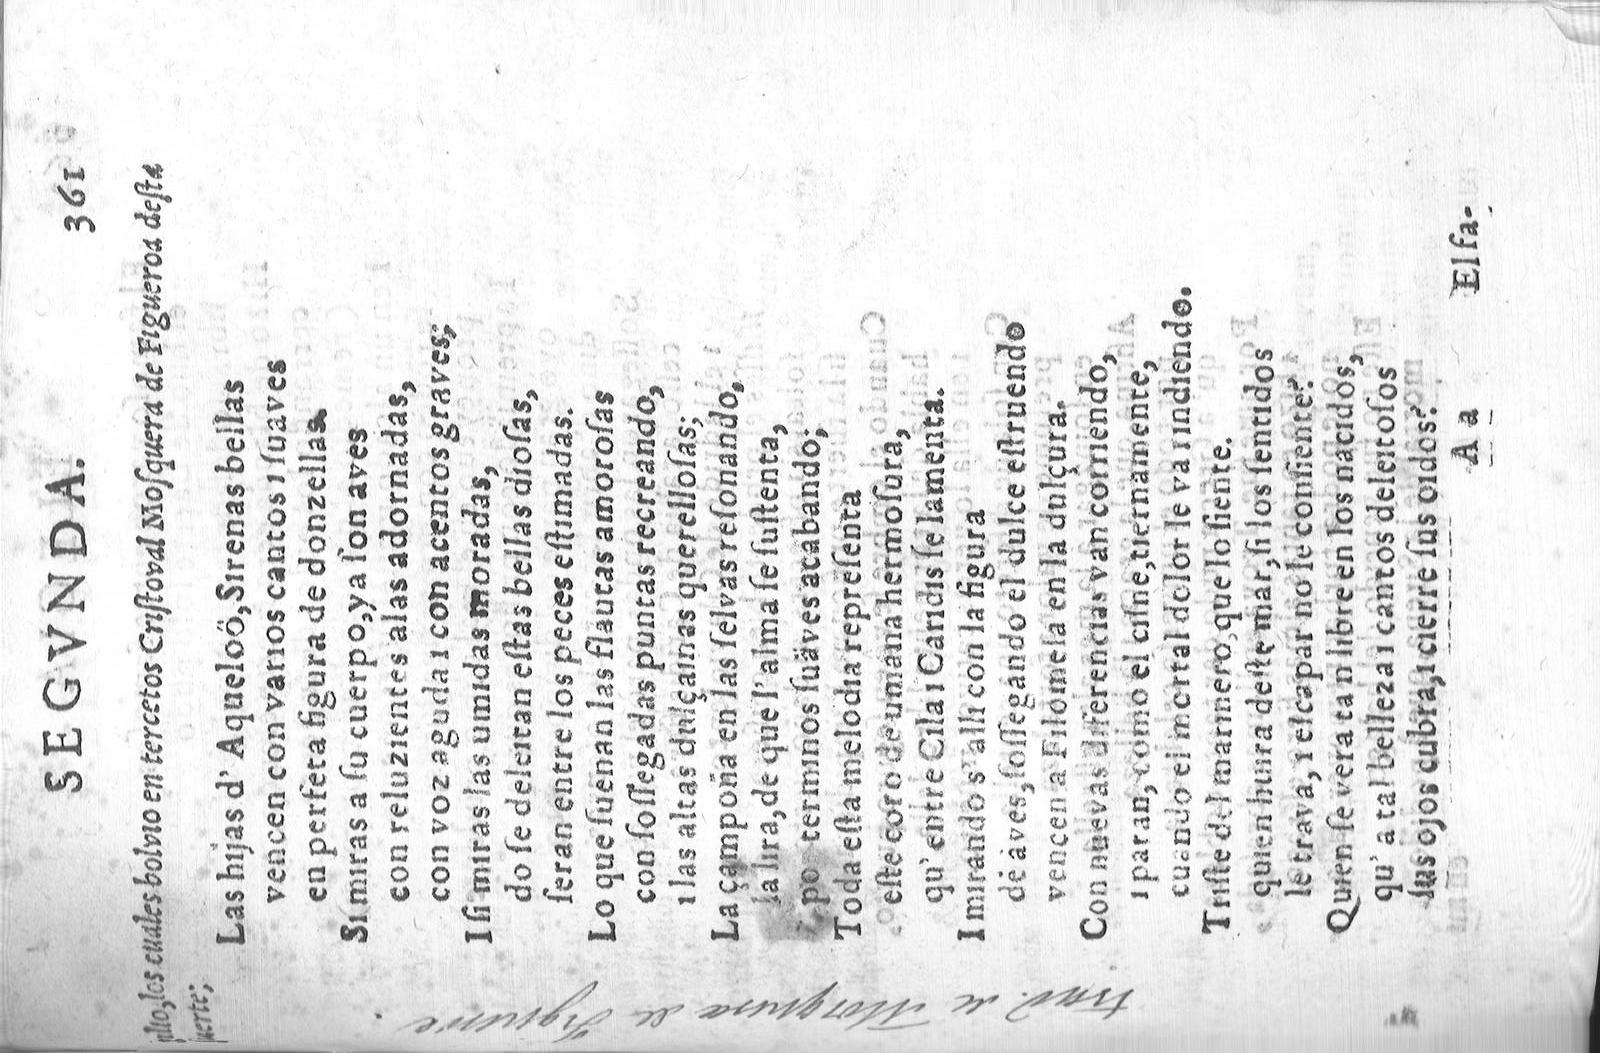 SEGVNDA. 361
jilio, los cuales bolvio en tercetos Cristoval Mosquera de Figueroa desta
suerte;
Las hijas d' Aqueloö, Sirenas bellas
vencen con varios cantos i suaves
en perfeta figura de donzellas.
Si miras a su cuerpo, ya son aves
con reluzientes alas adornadas,
con voz aguda i con acentos graves;
I si miras las umidas moradas,
do se deleitan estas bellas diosas,
seran entre los peces estimadas.
Lo que suenan las flautas amorosas
con sossegadas puntas recreando,
i las altas dulçainas querellosas;
La çampoña en las selvas resonando,
la lira, de que l' alma se sustenta,
por terminos suäves acabando;
Toda esta melodia representa
este coro de umana hermosura,
qu' entre Cila i Caridis se lamenta.
I mirando s' alli con la figura
de aves, sossegando el dulce estruendo
vencen a Filomela en la dulçura.
Con nuevas diferencias van corriendo,
i paran, como el cisne, tiernamente,
cuando el mortal dolor le va rindiendo.
Triste del marinero, que lo siente.
quien huira deste mar, si los sentidos
le trava, i escapar no le consiente?
Quien se vera tan libre en los nacidos,
qu' a tal belleza i cantos deleitosos
sus ojos cubra, i cierre sus oidos?
A a Elfa-
trad. de Mosquera de Figueroa.